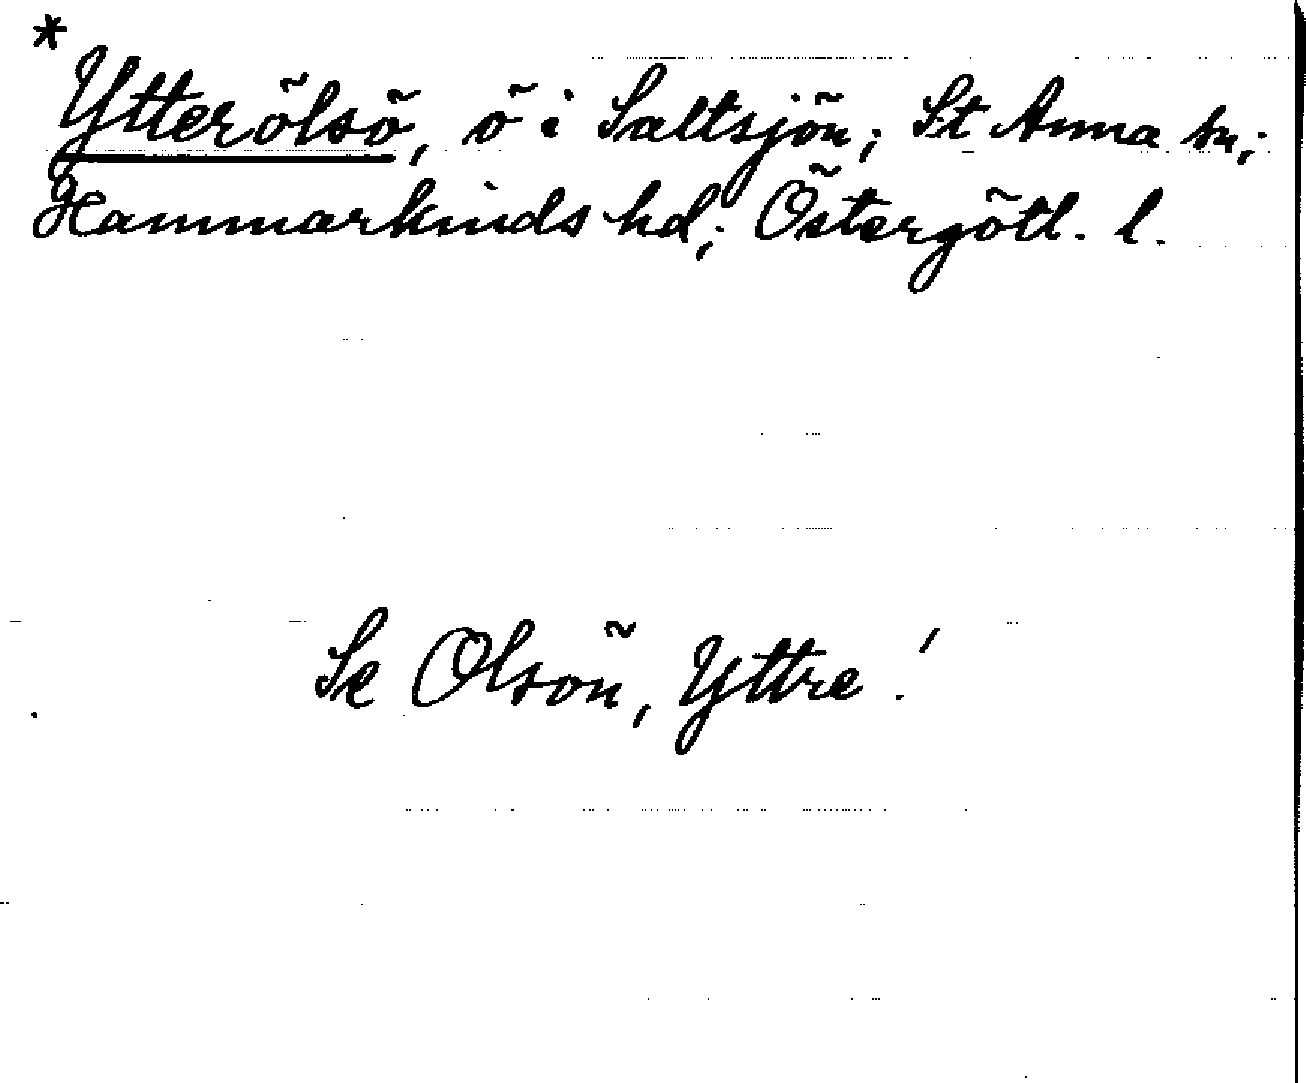 *
Ytterölsö, ö i Saltsjön; St Anna sn;
Hammarkinds hd; Östergötl. l.
Se Olsön, Yttre!